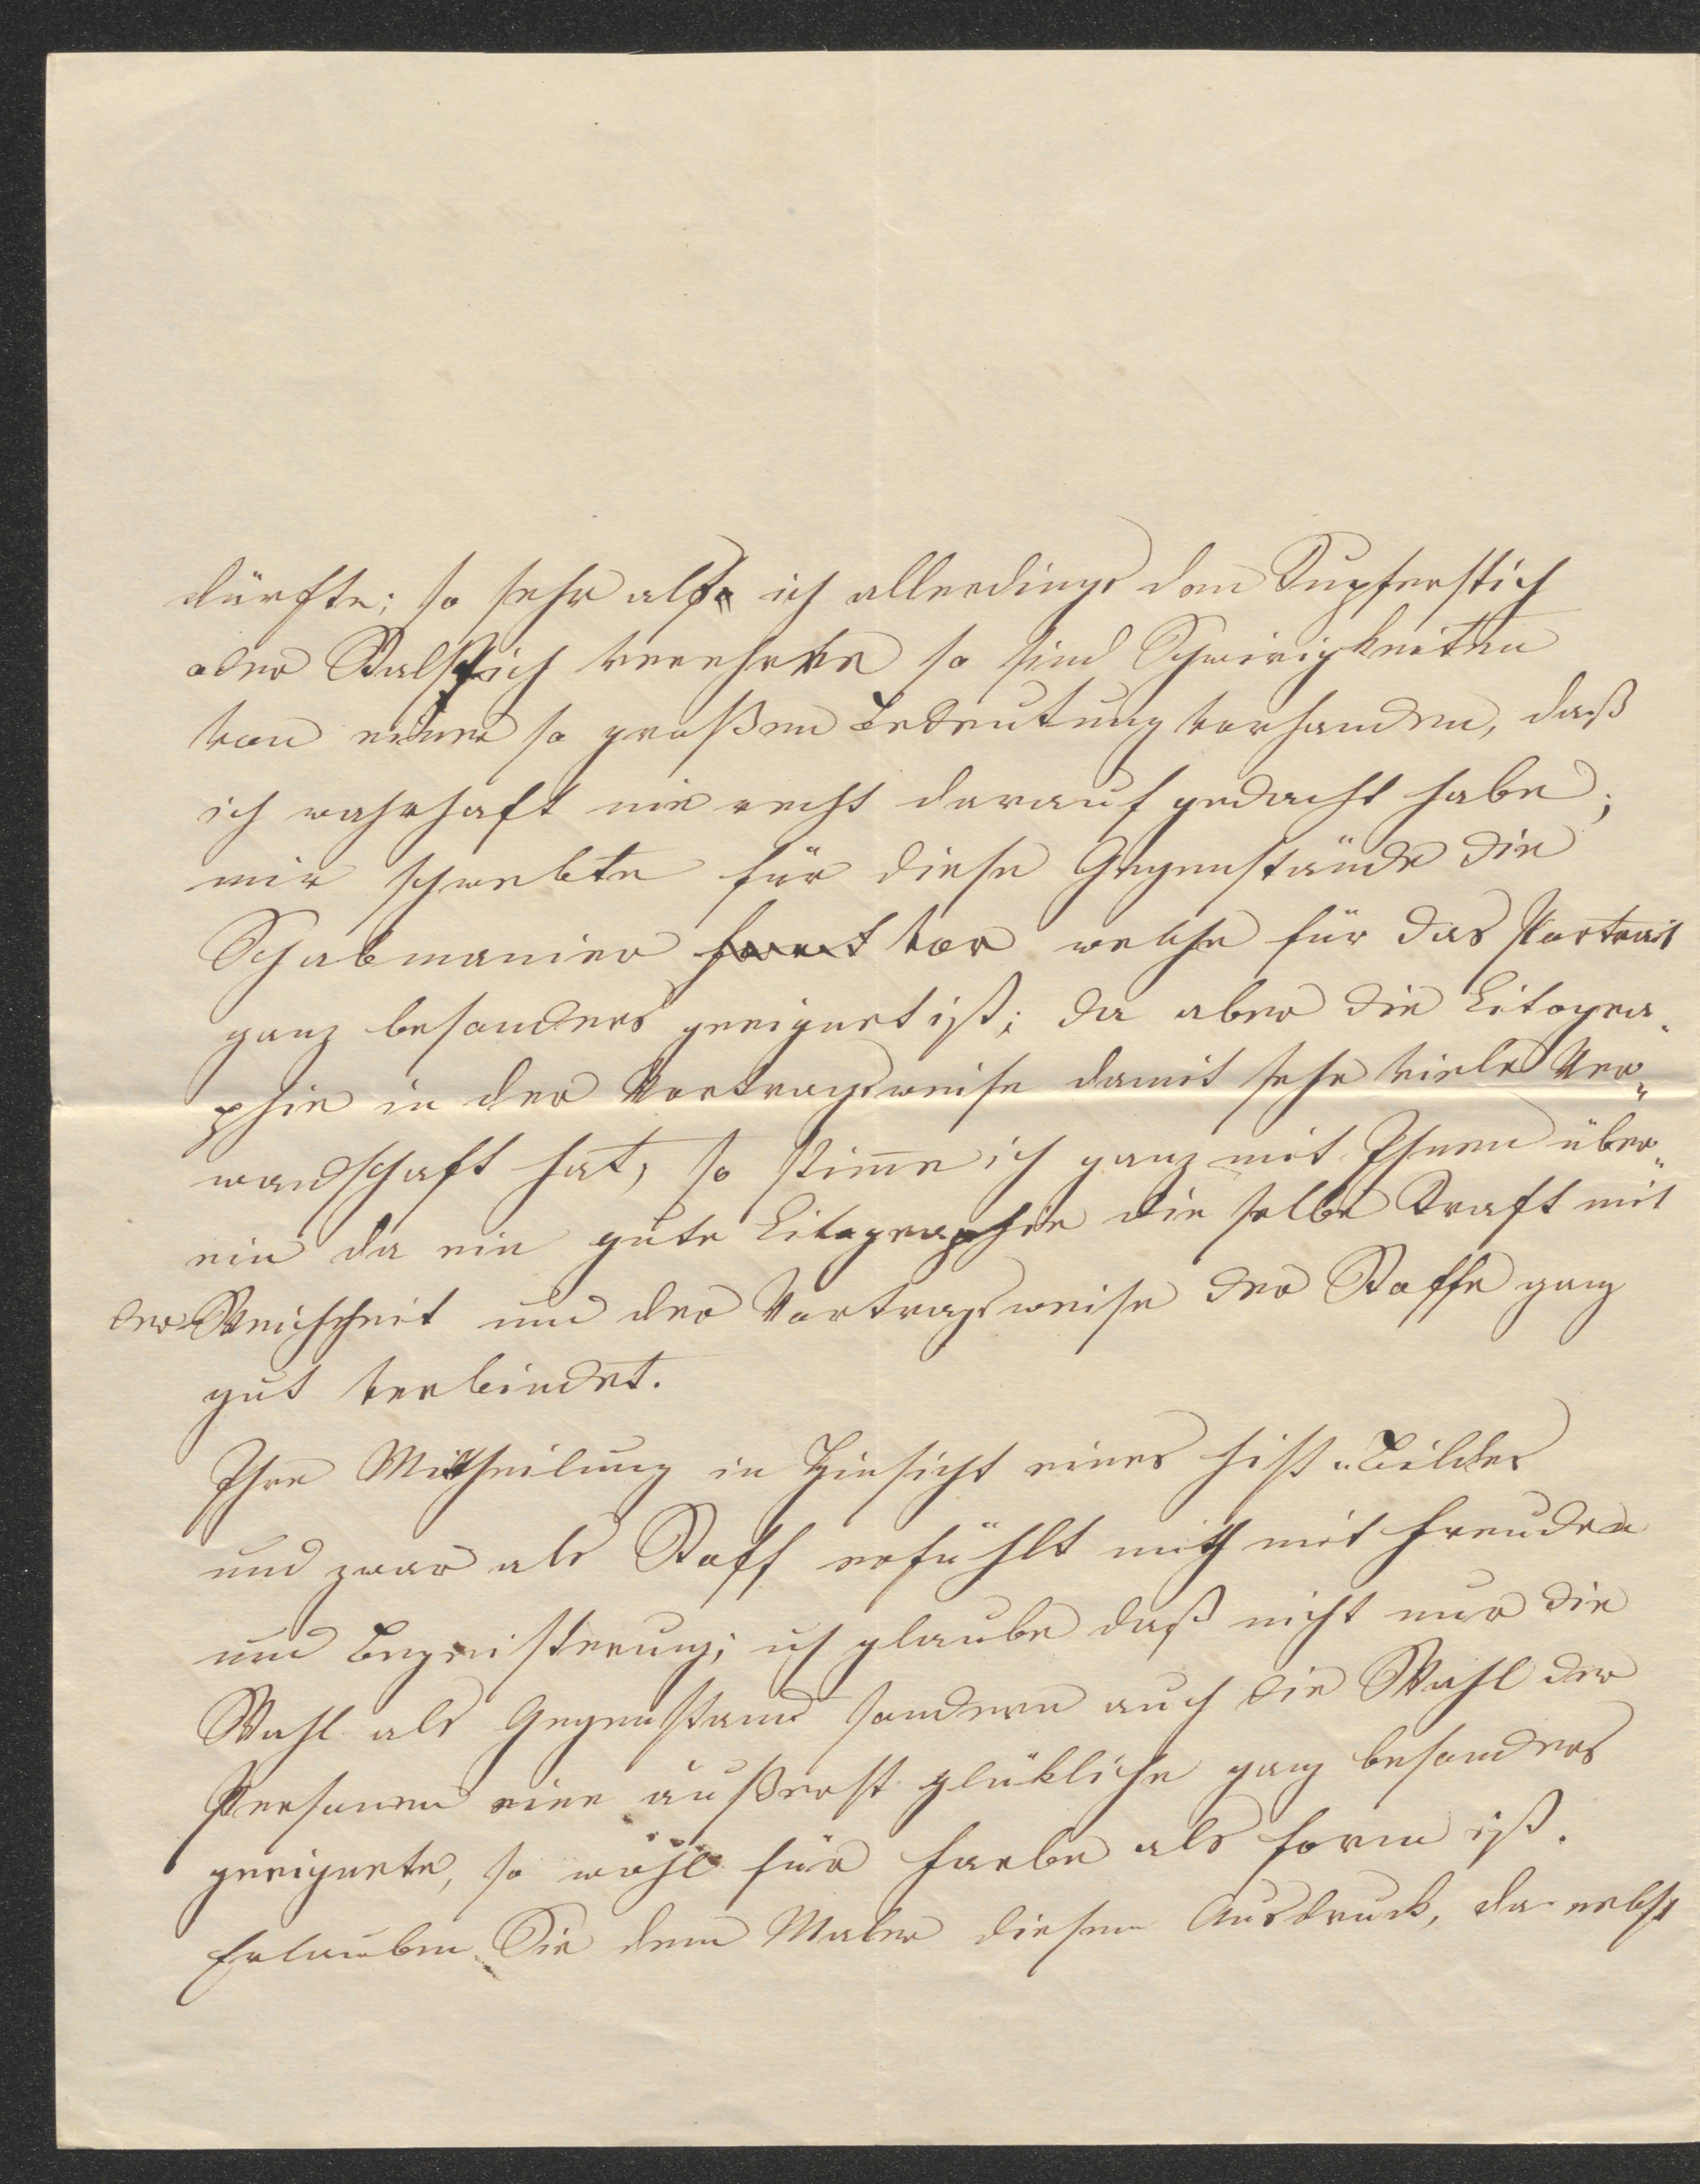 dürfte; so sehr also ich allerdings den Kupferstich
oder Stalstich verehrte so sind Schwirigkeiten
von einer so großen Bedeutung vorhanden, daß
ich wahrhaft nie recht darauf gedacht habe;
mir schwebte für diese Gegenstände die
Schabmanier vor welche für das Portrait
ganz besonders geeignet ist; da aber die Litogra„
phie in der Vortragsweise damit sehr viele Ver„
wandschaft hat, so stim̄e ich ganz mit Ihnen über„
ein da ein gute Litographie die selbe Kraft mit
der Weichheit und der Vortragsweise der Stoffe ganz
gut verbindet.
Ihre Mittheilung in Hinsicht eines hist. Bildes
und zwar als Stoff erfühlt mich mit Freuden
und Begeisterung; ich glaube daß nicht nur die
Wahl als Gegenstand sondern auch die Wahl der
Personen eine äußerst glükliche ganz besonders
geeignete, so wohl für Farbe als Form ist.
Erlauben Sie dem Maler diesen Ausdruck, da nebst